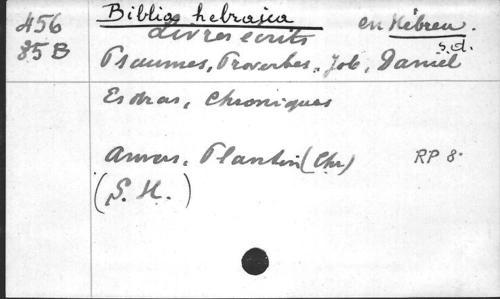 456
85 B
Biblia hebraica en Hébreu.
Livres écrits s.d.
Psaumes, Proverbes, Job, Daniel
Esdras, Chroniques
Anvers, Plantin (Chr)
RP 8º
(S. H.)